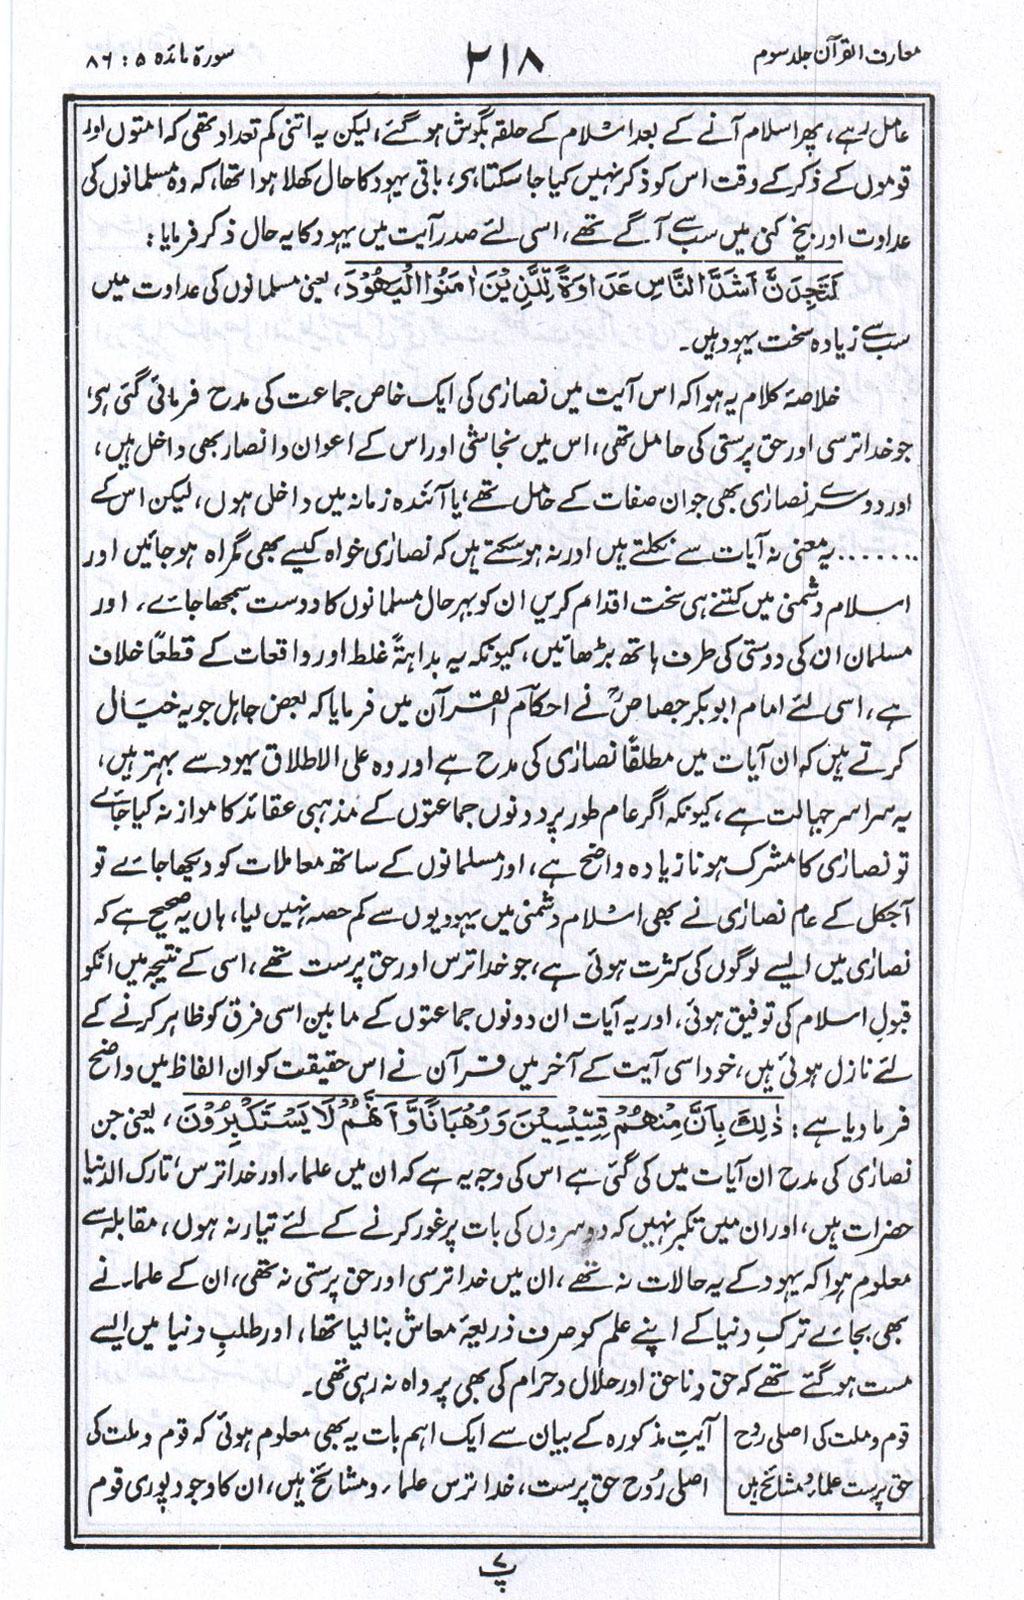 معارف القرآن جلد سوم
۲۱۸
سورۂ مائدہ ۵ : ۸۶
عامل رہے، پھر اسلام آنے کے بعد اسلام کے حلقہ بگوش ہو گئے، لیکن یہ اتنی کم تعداد تھی کہ امتوں اور
قوموں کے ذکر کے وقت اس کو ذکر نہیں کیا جا سکتا ہی، باقی یہود کا حال کھلا ہوا تھا، کہ وہ مسلمانوں کی
عداوت اور بیخ کنی میں سب سے آگے تھے، اسی لئے صدر آیت میں یہود کا یہ حال ذکر فرمایا:
لَتَجِدَنَّ اَشَدَّ النَّاسِ عَدَاوَةً لِّلَّذِیْنَ اٰمَنُوا الْیَهُوْدَ، یعنی مسلمانوں کی عداوت میں
سب سے زیادہ سخت یہود ہیں۔
خلاصۂ کلام یہ ہوا کہ اس آیت میں نصاریٰ کی ایک خاص جماعت کی مدح فرمائی گئی ہی،
جو خدا ترسی اور حق پرستی کی حامل تھی، اس میں نجاشی اور اس کے اعوان و انصار بھی داخل ہیں،
اور دوسرے نصاریٰ بھی جو ان صفات کے حامل تھے، یا آئندہ زمانہ میں داخل ہوں، لیکن اس کے
....... یہ معنی نہ آیات سے نکلتے ہیں اور نہ ہو سکتے ہیں کہ نصاریٰ خواہ کیسے بھی گمراہ ہو جائیں اور
اسلام دشمنی میں کتنے ہی سخت اقدام کریں ان کو بہر حال مسلمانوں کا دوست سمجھا جائے، اور
مسلمان ان کی دوستی کی طرف ہاتھ بڑھائیں، کیونکہ یہ بداہۃً غلط اور واقعات کے قطعًا خلاف
ہے، اسی لئے امام ابو بکر جصاصؒ نے احکام القرآن میں فرمایا کہ بعض جاہل جو یہ خیال
کرتے ہیں کہ ان آیات میں مطلقًا نصاریٰ کی مدح ہے اور وہ علی الاطلاق یہود سے بہتر ہیں،
یہ سراسر جہالت ہے، کیونکہ اگر عام طور پر دونوں جماعتوں کے مذہبی عقائد کا موازنہ کیا جائے
تو نصاریٰ کا مشرک ہونا زیادہ واضح ہے، اور مسلمانوں کے ساتھ معاملات کو دیکھا جائے تو
آجکل کے عام نصاریٰ نے بھی اسلام دشمنی میں یہودیوں سے کم حصہ نہیں لیا، ہاں یہ صحیح ہے کہ
نصاریٰ میں ایسے لوگوں کی کثرت ہوئی ہے، جو خدا ترس اور حق پرست تھے، اسی کے نتیجہ میں انکو
قبولِ اسلام کی توفیق ہوئی، اور یہ آیات ان دونوں جماعتوں کے مابین اسی فرق کو ظاہر کرنے کے
لئے نازل ہوئی ہیں، خود اسی آیت کے آخر میں قرآن نے اس حقیقت کو ان الفاظ میں واضح
فرما دیا ہے: ذٰلِكَ بِاَنَّ مِنْهُمْ قِسِّیْسِیْنَ وَرُهْبَانًا وَّاَنَّهُمْ لَا یَسْتَكْبِرُوْنَ، یعنی جن
نصاریٰ کی مدح ان آیات میں کی گئی ہے اس کی وجہ یہ ہے کہ ان میں علماء اور خدا ترس، تارک الدنیا
حضرات ہیں، اور ان میں تکبر نہیں کہ دوسروں کی بات پر غور کرنے کے لئے تیار نہ ہوں، مقابلہ سے
معلوم ہوا کہ یہود کے یہ حالات نہ تھے، ان میں خدا ترسی اور حق پرستی نہ تھی، ان کے علماء نے
بھی بجائے ترکِ دنیا کے اپنے علم کو صرف ذریعۂ معاش بنا لیا تھا، اور طلبِ دنیا میں ایسے
مست ہو گئے تھے کہ حق و ناحق اور حلال و حرام کی بھی پرواہ نہ رہی تھی۔
قوم و ملت کی اصلی روح
حق پرست علماء و مشائخ ہیں
آیتِ مذکورہ کے بیان سے ایک اہم بات یہ بھی معلوم ہوئی کہ قوم و ملت کی
اصلی رُوح حق پرست، خدا ترس علماء و مشائخ ہیں، ان کا وجود پوری قوم